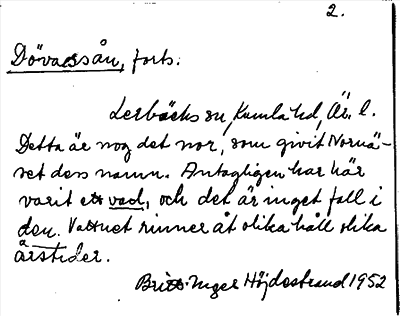 2.
Dövassån, forts.
Lerbäcks sn, Kumla hd, Är. l.
Detta är nog det nor, som givit Nornä-
set dess namn. Antagligen har här
varit ett vad, och det är inget fall i
den. Vattnet rinner åt olika håll olika
årstider.
Britt-Inger Höjdestrand 1952